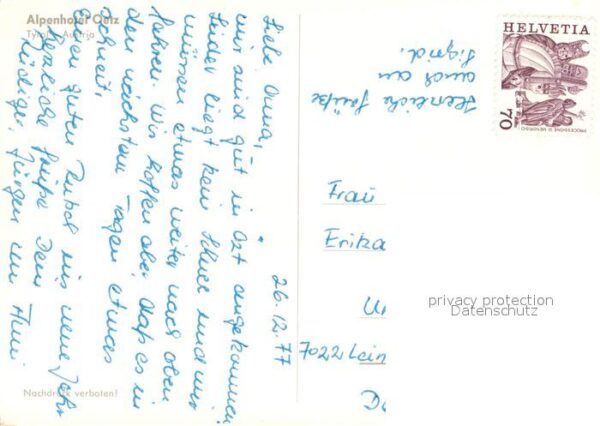 Alpenhotel Oetz
Tyrol - Austria
26.12.77
Liebe Oma,
wir sind gut in Ozt angekommen.
Leider liegt kein Schnee und wir
müssen etwas weiter nach oben
fahren. Wir hoffen aber, daß es in
den nächsten Tagen etwas
schneit.
Einen guten Rutsch ins neue Jahr
Herzliche Grüße Dein
Rüdiger, Jürgen un
Herzliche Grüße
auch an
Sigrid.
HELVETIA
70
Frau
Erika
7022 Lein
privacy protection
Datenschutz
Nachdruck verboten!